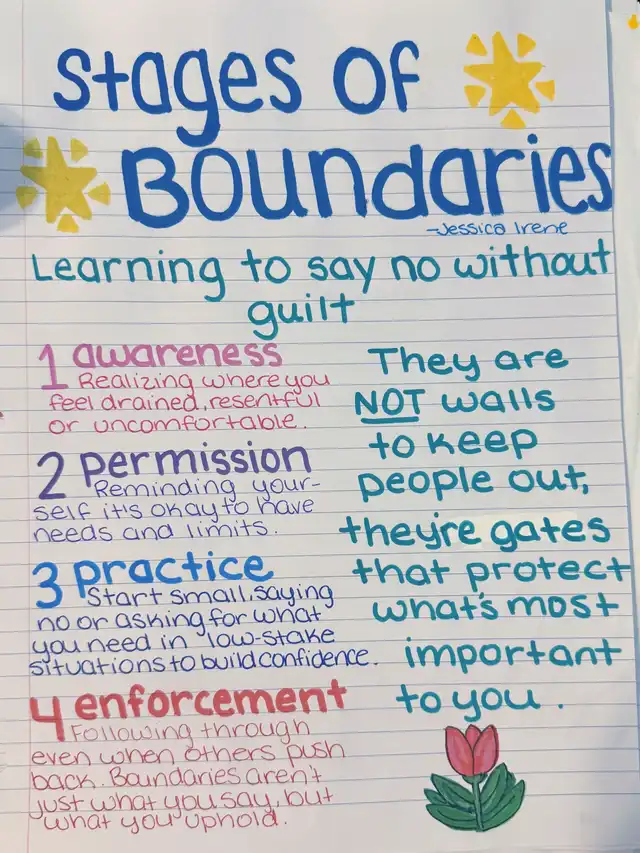 Stages of
Boundaries
-Jessica Irene
Learning to say no without
guilt
1 awareness
Realizing where you
feel drained, resentful
or uncomfortable.
2 permission
Reminding your-
self it's okay to have
needs and limits.
3 practice
Start small, saying
no or asking for what
you need in low-stake
situations to build confidence.
4 enforcement
Following through
even when others push
back. Boundaries aren't
just what you say, but
what you uphold.
They are
NOT walls
to keep
people out,
they're gates
that protect
what's most
important
to you.